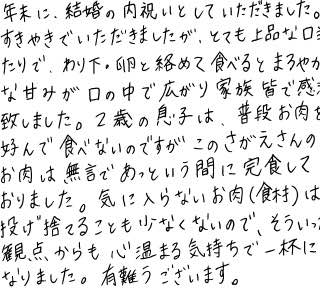 年末に、結婚の内祝いとしていただきました。
すきやきでいただきましたが、とても上品な口当
たりで、わり下・卵と絡めて食べるとまろやか
な甘みが口の中で広がり家族皆で感激
致しました。2歳の息子は、普段お肉を
好んで食べないのですがこのさがえさんの
お肉は無言であっという間に完食して
おりました。気に入らないお肉(食材)は
投げ捨てることも少なくないので、そういった
観点からも心温まる気持ちで一杯に
なりました。有難うございます。